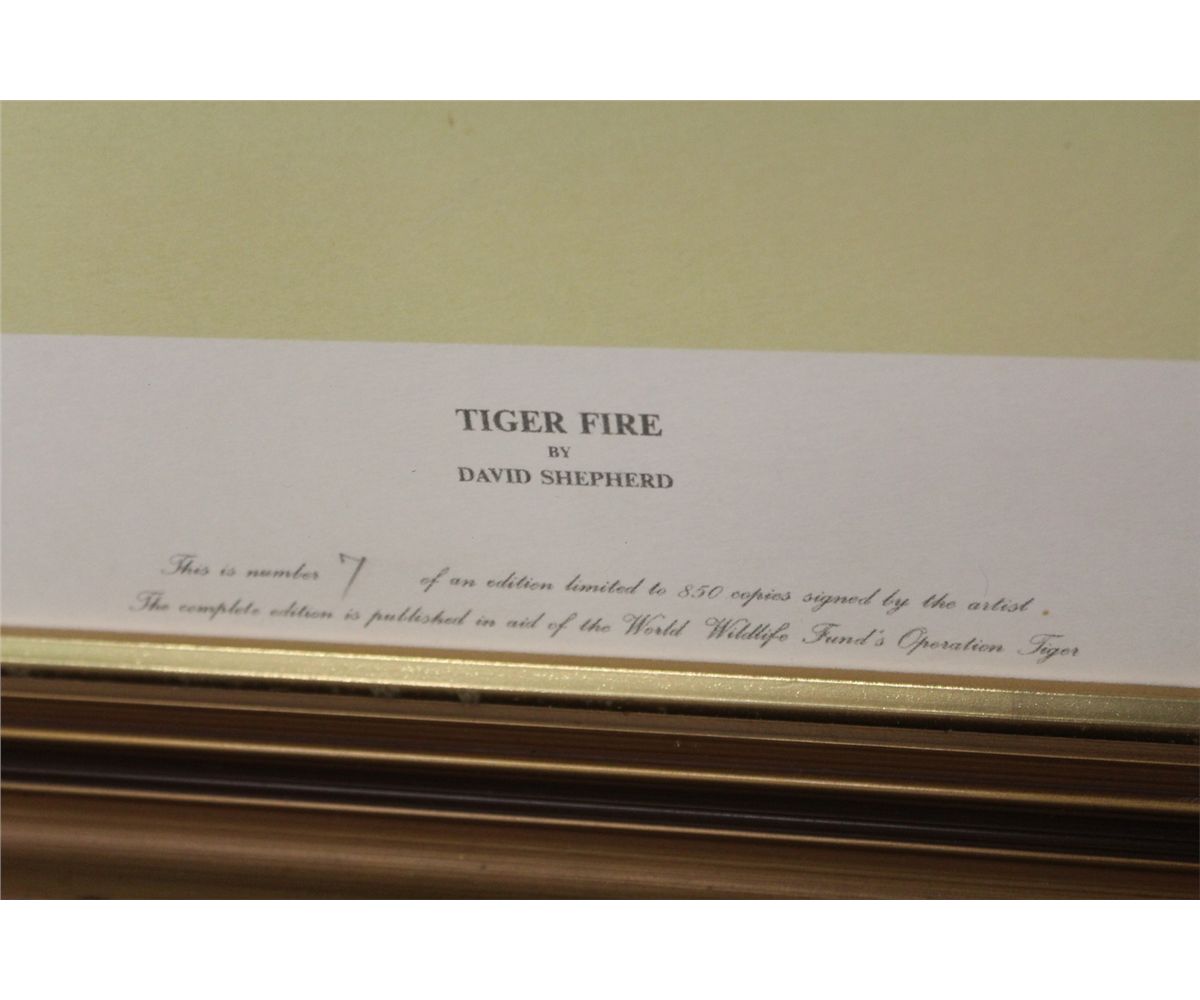 TIGER FIRE
BY
DAVID SHEPHERD
This is number 7 of an edition limited to 850 copies signed by the artist
The complete edition is published in aid of the World Wildlife Fund's Operation Tiger